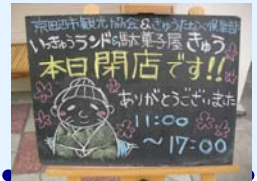 京田辺市観光協会&きゅうたなべ倶楽部
いっきゅうランド&駄菓子屋 きゅう
本日閉店です!!
ありがとうございました
11:00
~17:00